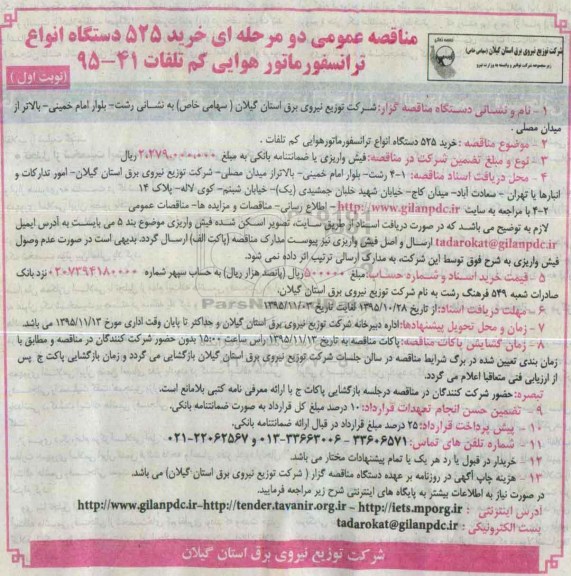 مناقصه عمومی دو مرحله ای خرید ۵۲۵ دستگاه انواع
ترانسفورماتور هوایی کم تلفات ۴۱-۹۵
(نوبت اول)
شرکت توزیع نیروی برق استان گیلان (سهامی خاص)
۱- نام و نشانی دستگاه مناقصه گزار: شرکت توزیع نیروی برق استان گیلان ( سهامی خاص) به نشانی رشت- بلوار امام خمینی- بالاتر از
میدان مصلی .
۲- موضوع مناقصه : خرید ۵۲۵ دستگاه انواع ترانسفورماتورهوایی کم تلفات .
۳- نوع و مبلغ تضمین شرکت در مناقصه: فیش واریزی یا ضمانتنامه بانکی به مبلغ ۲،۲۷۹،۰۰۰،۰۰۰ ریال
۴- محل دریافت اسناد مناقصه: ۱-۴ رشت- بلوار امام خمینی- بالاتراز میدان مصلی- شرکت توزیع نیروی برق استان گیلان- امور تدارکات و
انبارها یا تهران - سعادت آباد- میدان کاج- خیابان شهید خلبان جمشیدی (یک)- خیابان شبنم- کوی لاله- پلاک ۱۴
۲-۴ با مراجعه به سایت http://www.gilanpdc.ir - اطلاع رسانی- مناقصات و مزایده ها- مناقصات عمومی
لازم به توضیح می باشد که در صورت دریافت اسناد از طریق سایت، تصویر اسکن شده فیش واریزی موضوع بند ۵ می بایست به آدرس ایمیل
tadarokat@gilanpdc.ir ارسال و اصل فیش واریزی نیز پیوست مدارک مناقصه (پاکت الف) ارسال گردد. بدیهی است در صورت عدم وصول
فیش واریزی به شرح فوق توسط این شرکت، به مدارک ارسالی ترتیب اثر داده نمی شود.
۵- قیمت خرید اسناد و شماره حساب: مبلغ ۵۰۰۰۰۰ ریال (پانصد هزار ریال) به حساب سپهر شماره ۰۲۰۷۳۹۴۱۸۰۰۰۰ نزد بانک
صادرات شعبه ۵۴۹ فرهنگ رشت به نام شرکت توزیع نیروی برق استان گیلان.
۶- مهلت دریافت اسناد: از تاریخ ۱۳۹۵/۱۰/۲۸ لغایت تاریخ ۱۳۹۵/۱۱/۰۳
۷- زمان و محل تحویل پیشنهادها: اداره دبیرخانه شرکت توزیع نیروی برق استان گیلان و حداکثر تا پایان وقت اداری مورخ ۱۳۹۵/۱۱/۱۳ می باشد.
۸- زمان گشایش پاکات مناقصه: پاکات مناقصه به تاریخ ۱۳۹۵/۱۱/۱۳ راس ساعت ۱۵:۰۰ بدون حضور شرکت کنندگان در مناقصه و مطابق با
زمان بندی تعیین شده در برگ شرایط مناقصه در سالن جلسات شرکت توزیع نیروی برق استان گیلان بازگشایی می گردد و زمان بازگشایی پاکت ج پس
از ارزیابی فنی متعاقبا اعلام می گردد.
تبصره: حضور شرکت کنندگان در مناقصه درجلسه بازگشایی پاکات ج با ارائه معرفی نامه کتبی بلامانع است.
۹- تضمین حسن انجام تعهدات قرارداد: ۱۰ درصد مبلغ کل قرارداد به صورت ضمانتنامه بانکی.
۱۰- پیش پرداخت قرارداد: ۲۵ درصد مبلغ قرارداد در قبال ارائه ضمانتنامه بانکی.
۱۱- شماره تلفن های تماس: ۳۳۶۰۶۵۷۱ - ۰۱۳-۳۳۶۶۳۰۰۶ و ۰۲۱-۲۲۰۶۲۵۶۷
۱۲- خریدار در قبول یا رد هر یک یا تمام پیشنهادات مختار می باشد.
۱۳- هزینه چاپ آگهی در روزنامه بر عهده دستگاه مناقصه گزار ( شرکت توزیع نیروی برق استان گیلان) می باشد.
در صورت نیاز به اطلاعات بیشتر به پایگاه های اینترنتی شرح زیر مراجعه فرمایید.
آدرس اینترنتی : http://www.gilanpdc.ir-http://tender.tavanir.org.ir - http://iets.mporg.ir
پست الکترونیکی : tadarokat@gilanpdc.ir
شرکت توزیع نیروی برق استان گیلان